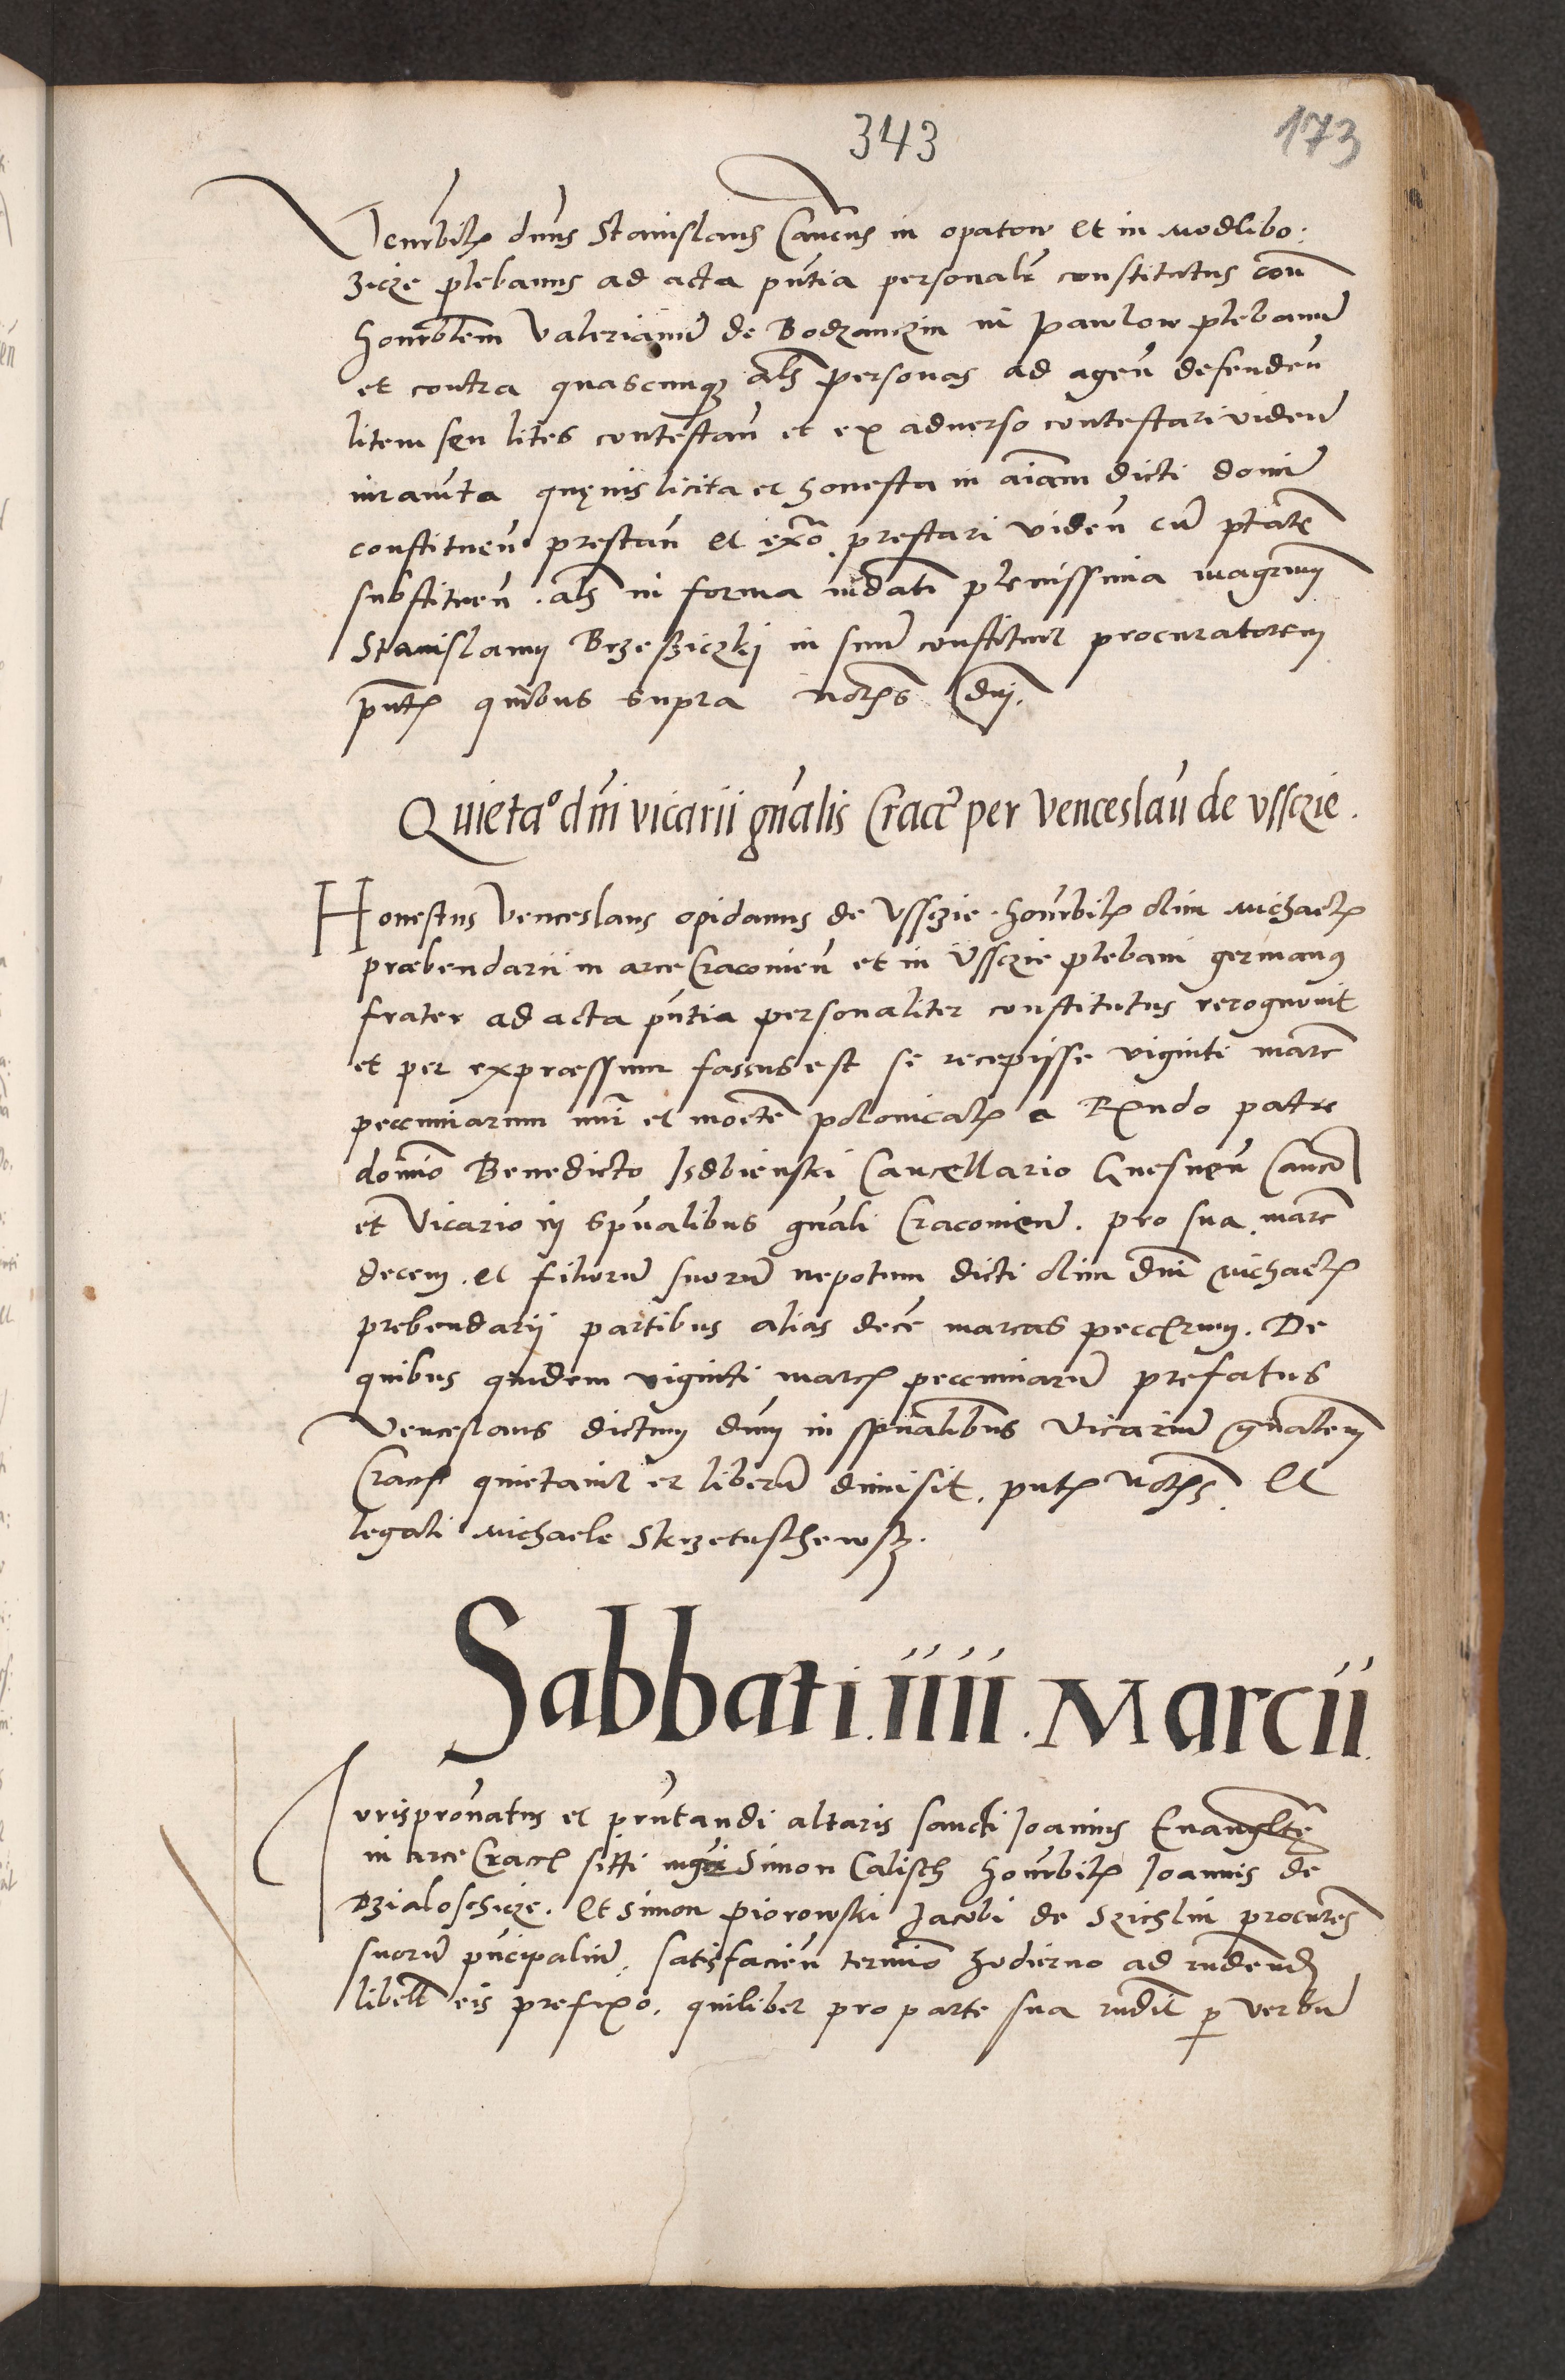 343
173
Venrbilis dnus Stanislaus Canicus in opatow et in Modlibo:
zicze plebanus ad acta pntia personalr constitutus con
honrblem Valerianu de Bodzanczin in pawlow plebanu
et contra quascunqz als personas ad agen defenden
litem seu lites contestan et ex aduerso contestari viden
iurameta queuis licita et honesta in aiam dicti domi
constituen prestan et exo prestari viden cu ptate
substituen als in forma mdati plenissima magrum
Stanislaum Brzesziczkj in suu constituit procuratorem
pntz quibus supra notis Cdvj.
Quietao dni vicarii gnalis Cracc per venceslau de vssczie.
Honestus Venceslaus opidanus de Vssczie honrbilis olim Michaelis
præbendarii in arce Cracouien et in Vssczie plebani germanus
frater ad acta pntia personaliter constitutus recognouit
et per expræssum fassus est se recepisse viginti marc
peccuniarum nuri et monete polonicalis a Rxndo patre
domino Benedicto Isdbienski Cancellario Gnesnen Canco
et Vicario in spualibus gnali Cracouien. pro sua marc
decem et filioru suoru nepotum dicti olim dni Michaelis
prebendarij partibus alias dece marcas pecciarum. De
quibus quidem viginti marcis peccuniaru prefatus
Venceslaus dictum dnm in spualibus Vicariu gnalem
Crac quietauit et liberu dimisit. pntz notis et
legali Michaele Skrzetuschewsz.
Sabbati. iiii. Marcii
Jurispronatus et pntandi altaris sancti Joannis Euangliste
in arce Crac sitti mgri Simon Calisch honrbilis Joannis de
Dzialoschicze. et Simon piorowski Jacobi de Szichlin procures
suoru pncipaliu. satisfacien termino hodierno ad rndend
libell eis prefixo. quilibet pro parte sua rndit p verbu